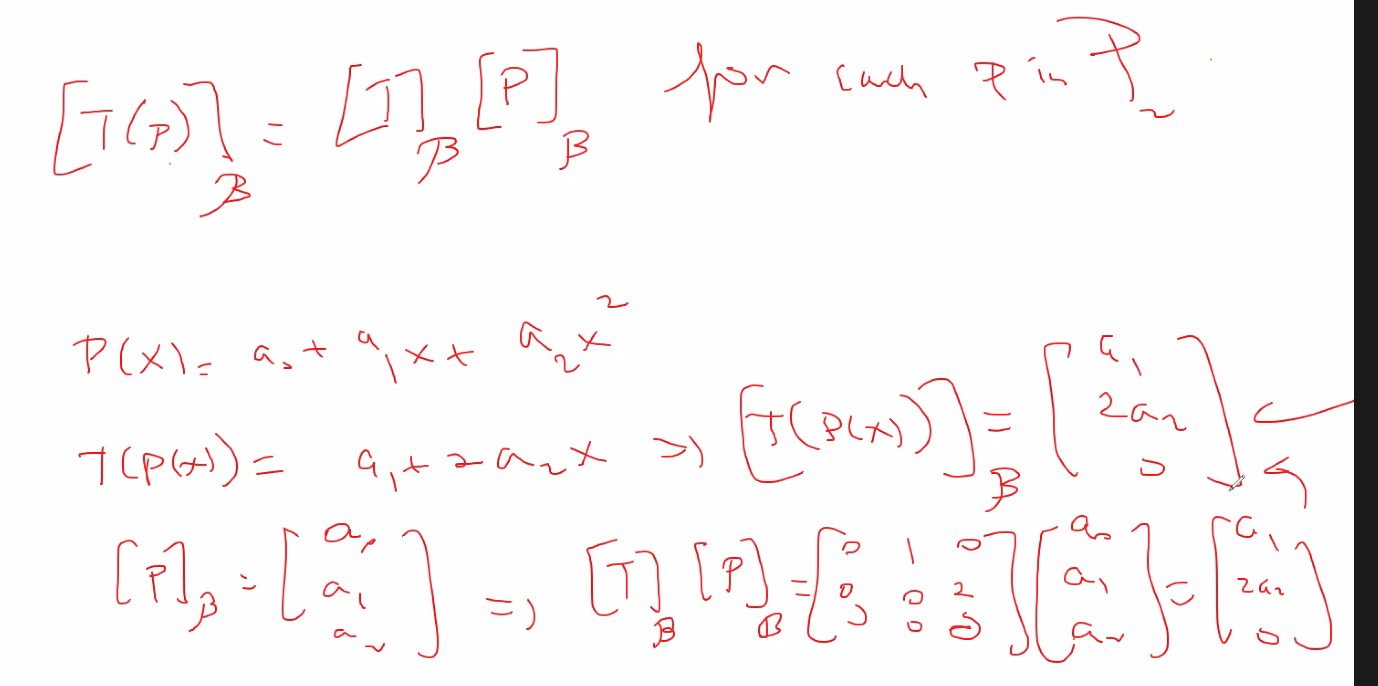 [T(P)]_B = [T]_B [P]_B for each P in P_2
P(x) = a_0 + a_1 x + a_2 x^2
T(P(x)) = a_1 + 2a_2 x => [T(P(x))]_B = [a_1 2a_2 0]
[P]_B = [a_0 a_1 a_2] => [T]_B [P]_B = [0 1 0; 0 0 2; 0 0 0] [a_0 a_1 a_2] = [a_1 2a_2 0]